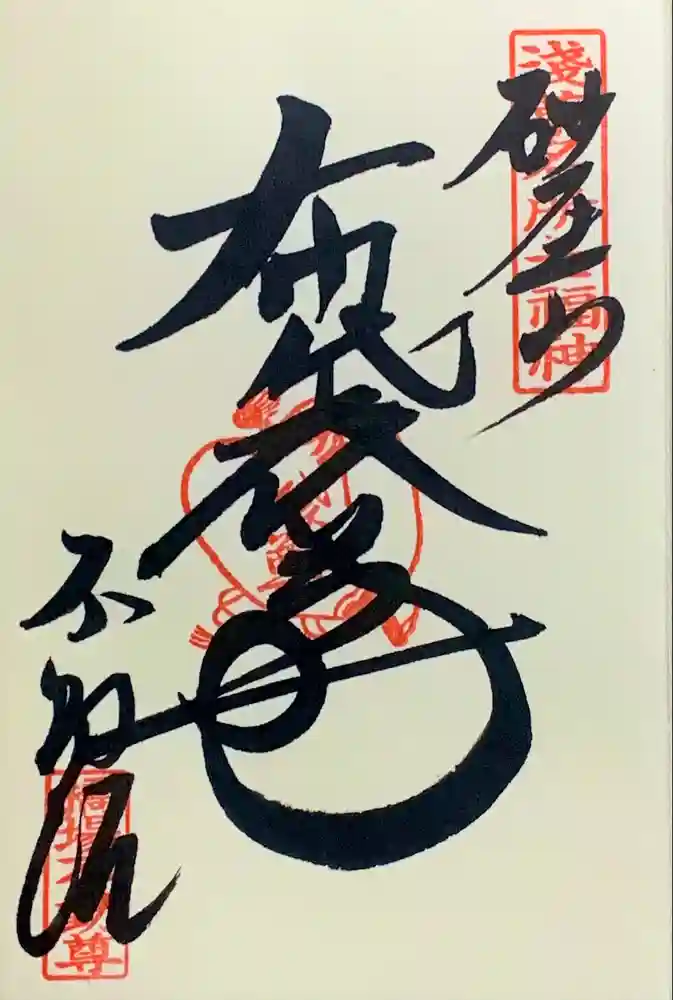 浅草名所七福神
砂尾山
布袋尊
不動院
橋場不動尊